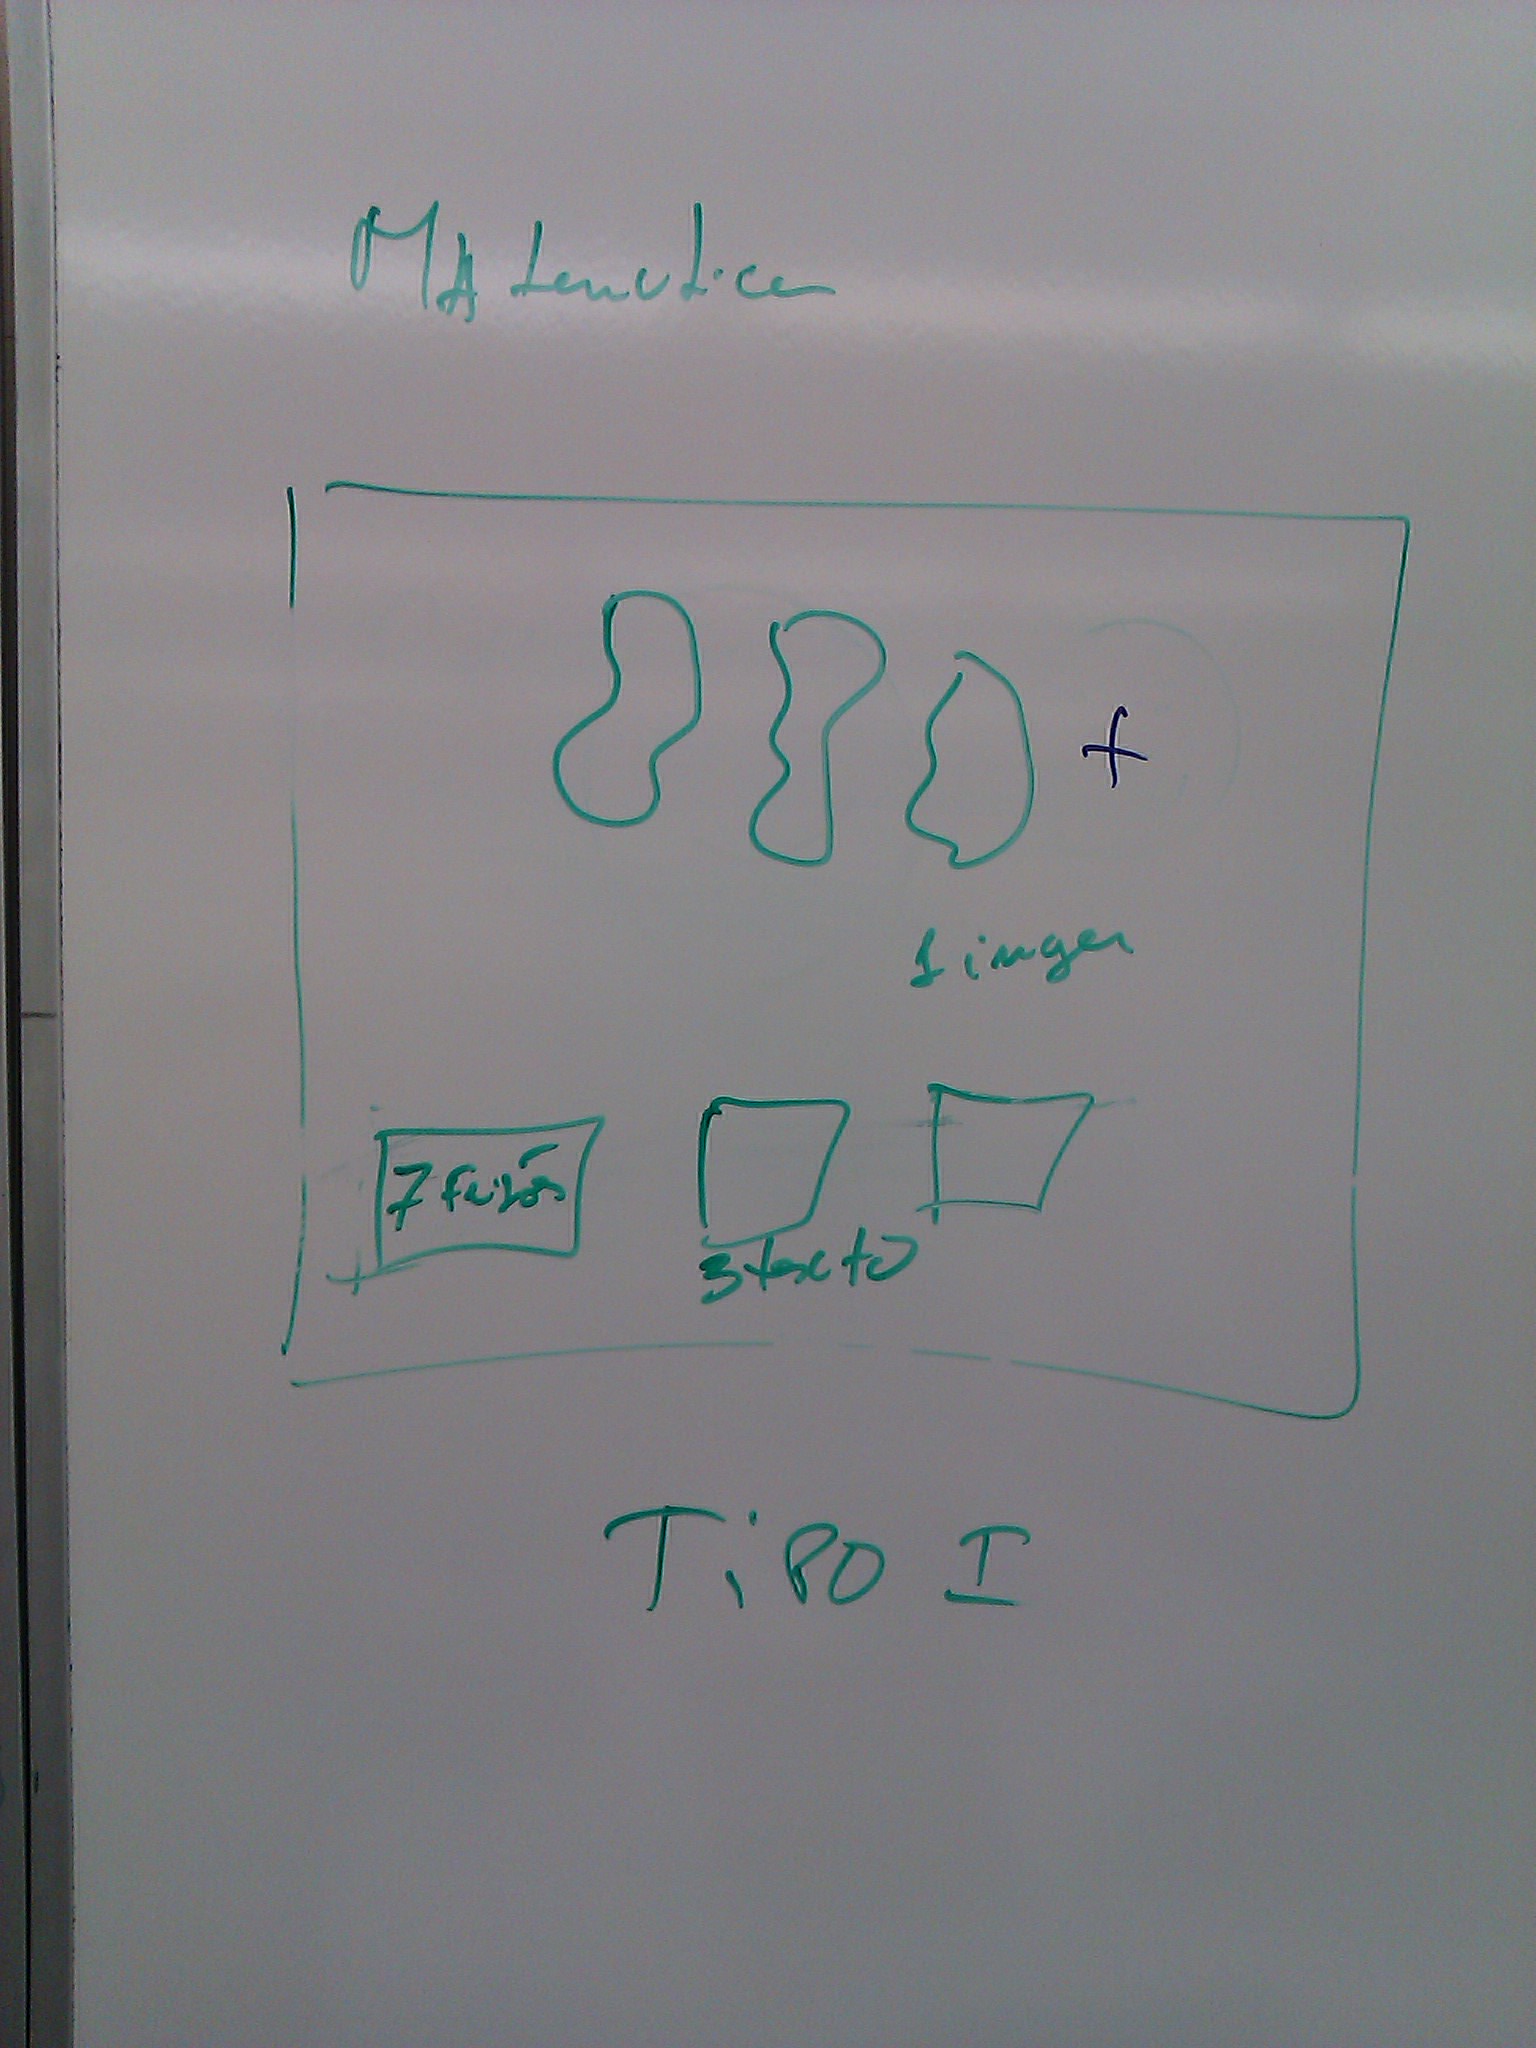 MAtematica
+
1 imagen
7 feijões
3 texto
TiPO I